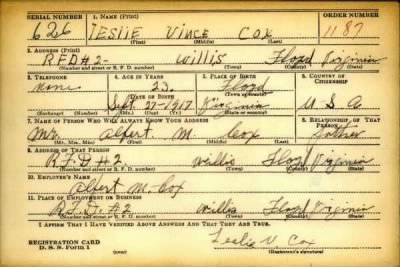 SERIAL NUMBER 1. NAME (Print) ORDER NUMBER
626 Leslie Vince Cox 1187
(First) (Middle) (Last)
2. ADDRESS (Print)
RFD #2- Willis Floyd Virginia
(Number and street or R. F. D. number) (Town) (County) (State)
3. TELEPHONE 4. AGE IN YEARS 5. PLACE OF BIRTH 6. COUNTRY OF CITIZENSHIP
None 23. Floyd
DATE OF BIRTH (Town or county)
Sept. 27-1917 Virginia U. S. A.
(Exchange) (Number) (Mo.) (Day) (Yr.) (State or country)
7. NAME OF PERSON WHO WILL ALWAYS KNOW YOUR ADDRESS 8. RELATIONSHIP OF THAT PERSON
Mr. Albert M. Cox Father
(Mr., Mrs., Miss) (First) (Middle) (Last)
9. ADDRESS OF THAT PERSON
R.F.D #2. Willis Floyd Virginia
(Number and street or R. F. D. number) (Town) (County) (State)
10. EMPLOYER'S NAME
Albert M. Cox
11. PLACE OF EMPLOYMENT OR BUSINESS
R.F.D. #2 Willis Floyd Virginia
(Number and street or R. F. D. number) (Town) (County) (State)
I AFFIRM THAT I HAVE VERIFIED ABOVE ANSWERS AND THAT THEY ARE TRUE.
REGISTRATION CARD Leslie V. Cox
D. S. S. Form 1 (over) (Registrant's signature)